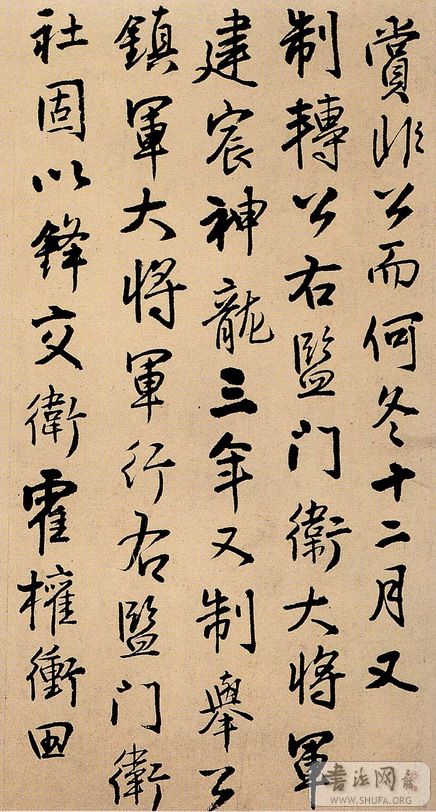 賞非公而何冬十二月又
制轉公右監門衛大將軍
建宸神龍三年又制舉公
鎮軍大將軍行右監門衛
社固以鋒交衛霍權衝田
書法网
WWW.SHUFA.ORG